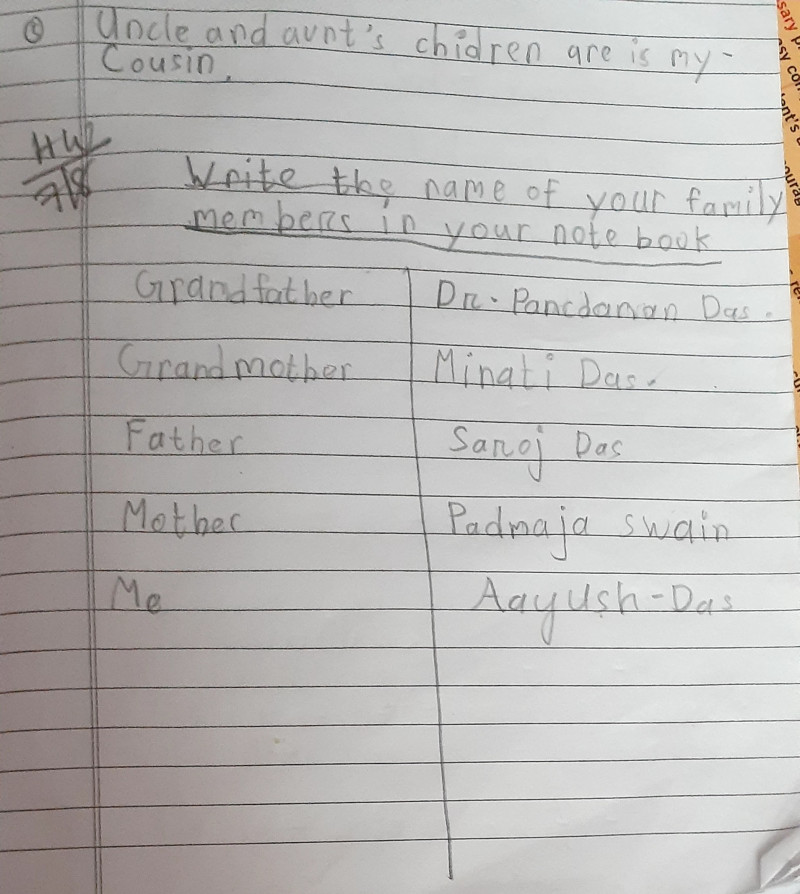 Uncle and aunt's chidren are is my-
Cousin.
HW
7/8
Write the name of your family
members in your note book
Grandfather Dr. Pancdanan Das.
Grandmother Minati Das.
Father Saroj Das
Mother Padmaja swain
Me Aayush-Das
sary